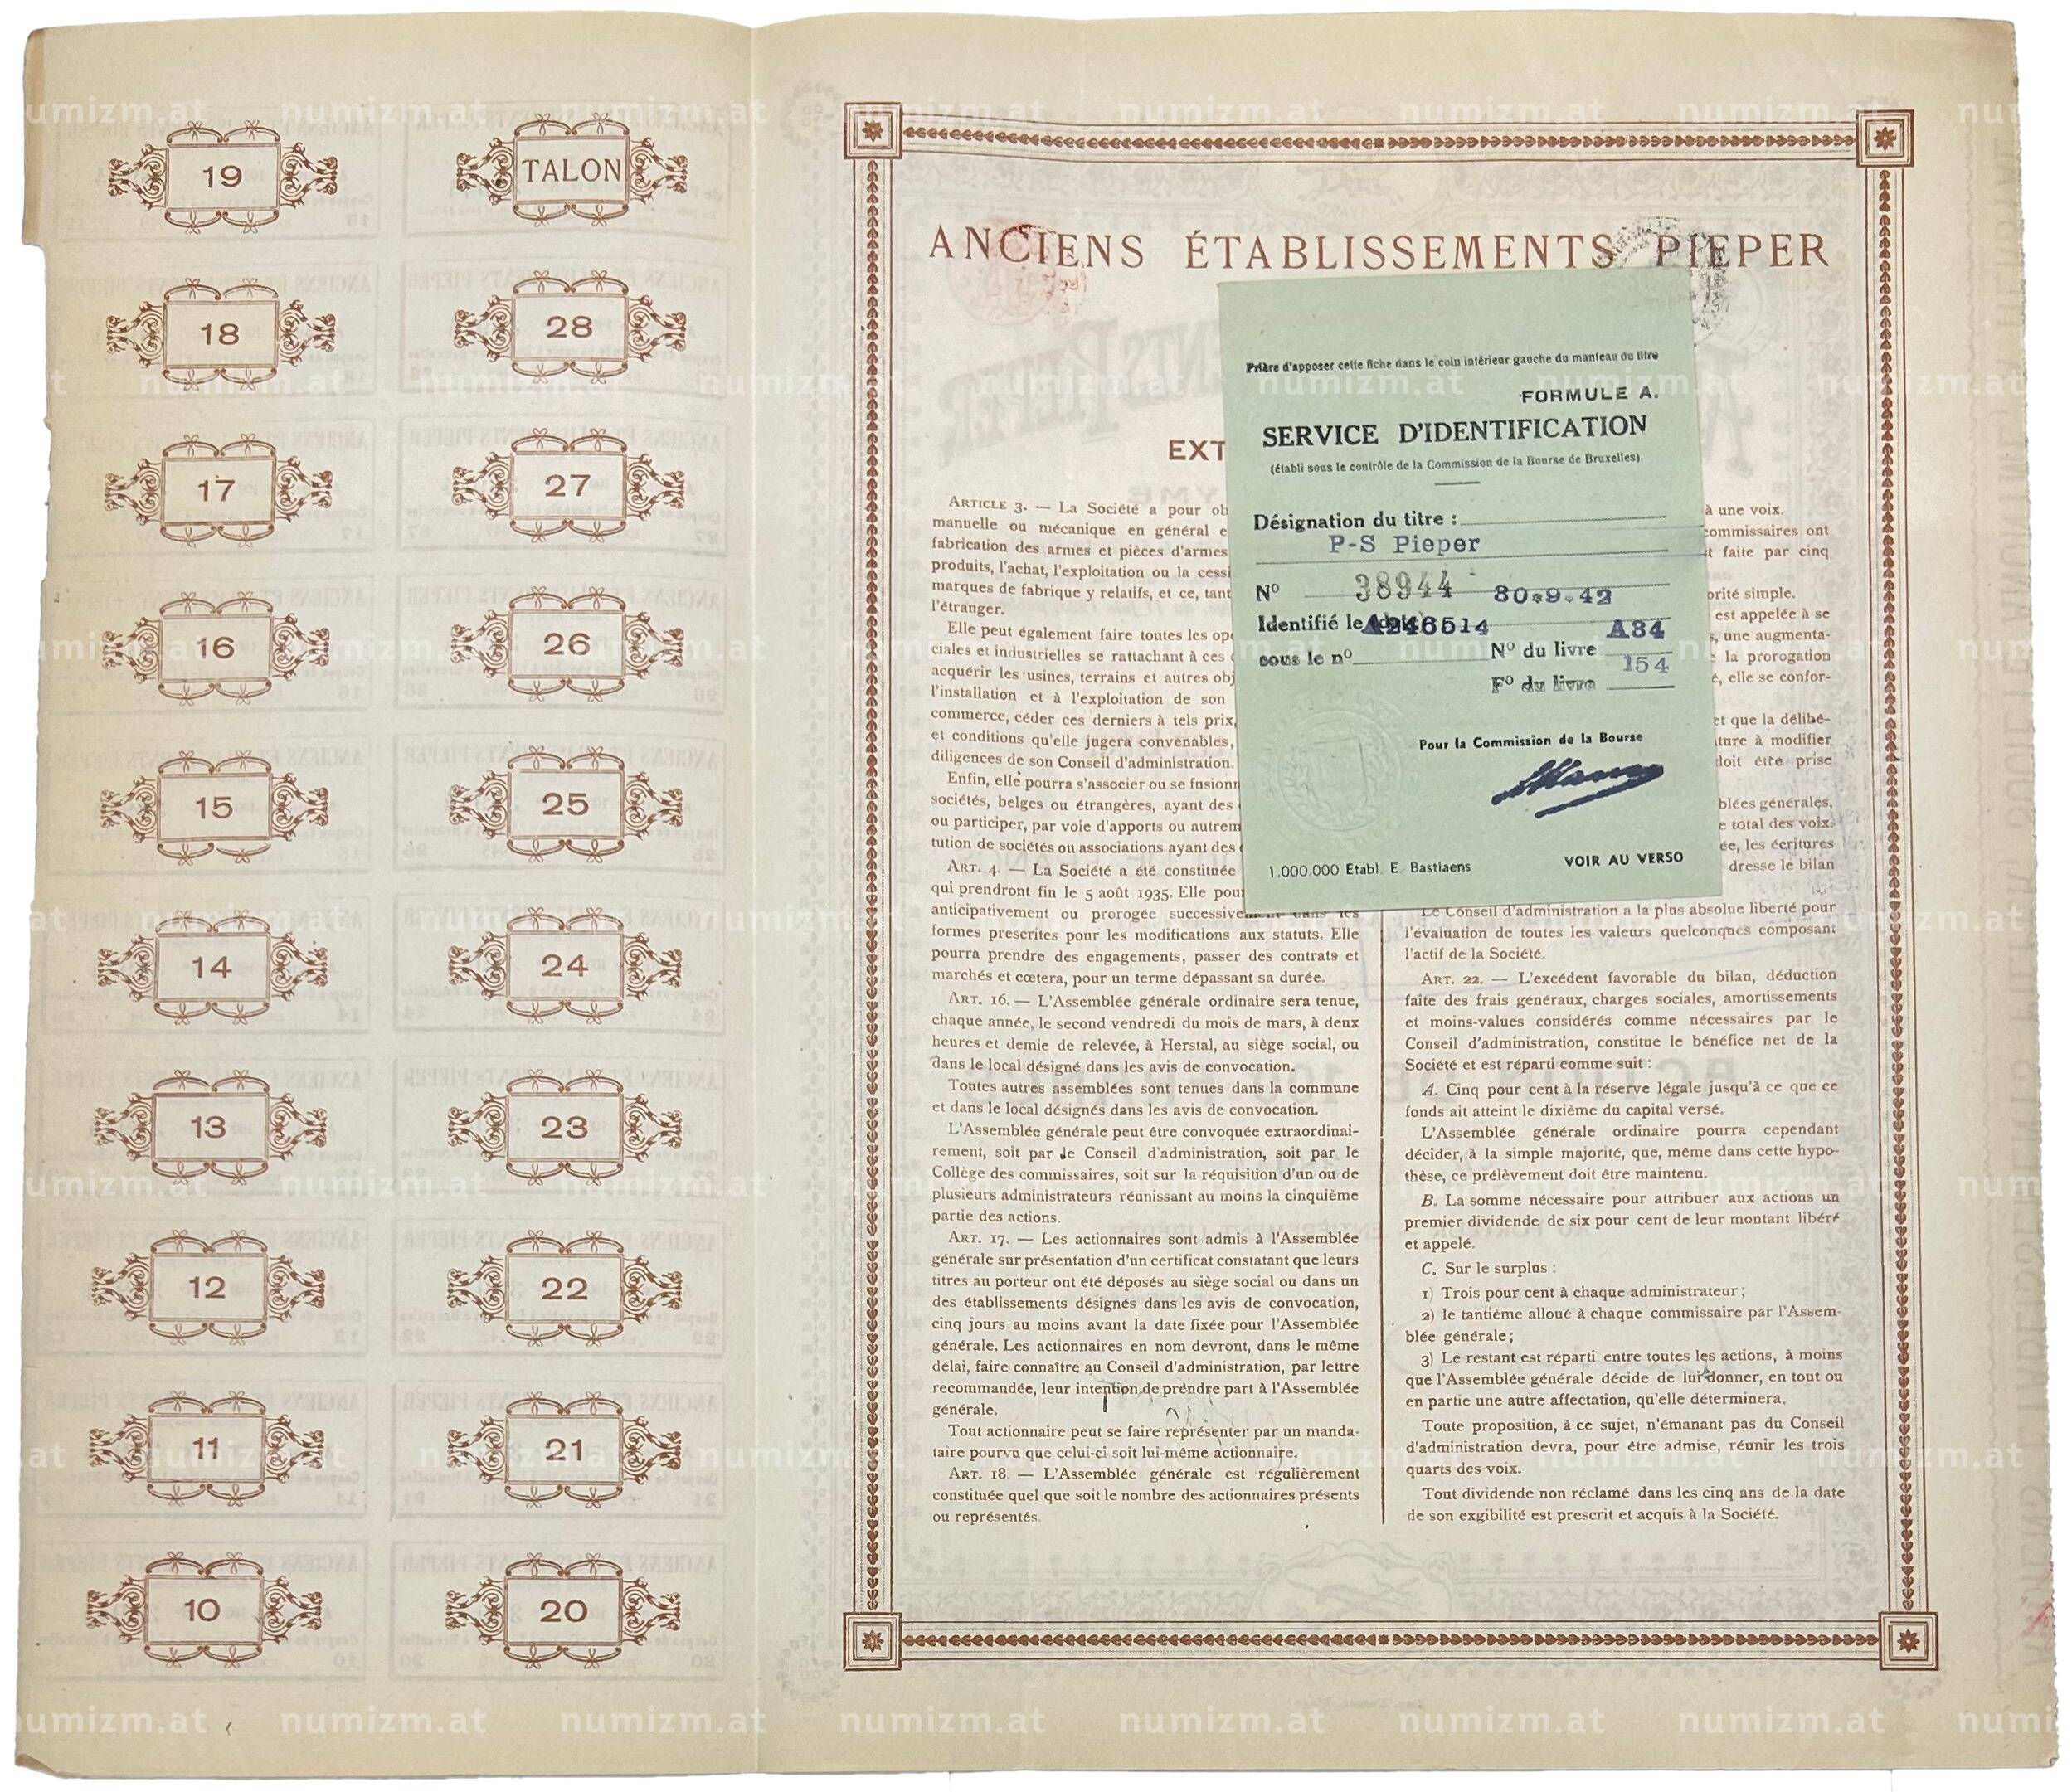 19
TALON
18
28
17
27
16
26
15
25
14
24
13
23
12
22
11
21
10
20
ANCIENS ÉTABLISSEMENTS PIEPER
EXT
ARTICLE 3. — La Société a pour ob
manuelle ou mécanique en général e
fabrication des armes et pièces d'armes
produits, l'achat, l'exploitation ou la cessi
marques de fabrique y relatifs, et ce, tant
l'étranger.
Elle peut également faire toutes les opé
ciales et industrielles se rattachant à ces
acquérir les usines, terrains et autres obj
l'installation et à l'exploitation de son
commerce, céder ces derniers à tels prix,
et conditions qu'elle jugera convenables,
diligences de son Conseil d'administration.
Enfin, elle pourra s'associer ou se fusionn
sociétés, belges ou étrangères, ayant des
ou participer, par voie d'apports ou autrem
tution de sociétés ou associations ayant des
ART. 4. — La Société a été constituée
qui prendront fin le 5 août 1935. Elle pour
anticipativement ou prorogée successivement dans les
formes prescrites pour les modifications aux statuts. Elle
pourra prendre des engagements, passer des contrats et
marchés et cœtera, pour un terme dépassant sa durée.
ART. 16. — L'Assemblée générale ordinaire sera tenue,
chaque année, le second vendredi du mois de mars, à deux
heures et demie de relevée, à Herstal, au siège social, ou
dans le local désigné dans les avis de convocation.
Toutes autres assemblées sont tenues dans la commune
et dans le local désignés dans les avis de convocation.
L'Assemblée générale peut être convoquée extraordinai-
rement, soit par le Conseil d'administration, soit par le
Collège des commissaires, soit sur la réquisition d'un ou de
plusieurs administrateurs réunissant au moins la cinquième
partie des actions.
ART. 17. — Les actionnaires sont admis à l'Assemblée
générale sur présentation d'un certificat constatant que leurs
titres au porteur ont été déposés au siège social ou dans un
des établissements désignés dans les avis de convocation,
cinq jours au moins avant la date fixée pour l'Assemblée
générale. Les actionnaires en nom devront, dans le même
délai, faire connaître au Conseil d'administration, par lettre
recommandée, leur intention de prendre part à l'Assemblée
générale.
Tout actionnaire peut se faire représenter par un manda-
taire pourvu que celui-ci soit lui-même actionnaire.
ART. 18. — L'Assemblée générale est régulièrement
constituée quel que soit le nombre des actionnaires présents
ou représentés.
Prière d'apposer cette fiche dans le coin intérieur gauche du manteau du titre
FORMULE A.
SERVICE D'IDENTIFICATION
(établi sous le contrôle de la Commission de la Bourse de Bruxelles)
Désignation du titre :
P-S Pieper
Nº 38944 30-9-42
Identifié le A246514 A84
sous le nº Nº du livre 154
Fº du livre
Pour la Commission de la Bourse
1.000.000 Etabl. E. Bastiaens VOIR AU VERSO
à une voix.
commissaires ont
t faite par cinq
orité simple.
est appelée à se
s, une augmenta-
la prorogation
é, elle se confor-
et que la délibé-
ture à modifier
doit être prise
blées générales,
e total des voix.
ée, les écritures
dresse le bilan
Le Conseil d'administration a la plus absolue liberté pour
l'évaluation de toutes les valeurs quelconques composant
l'actif de la Société.
ART. 22. — L'excédent favorable du bilan, déduction
faite des frais généraux, charges sociales, amortissements
et moins-values considérés comme nécessaires par le
Conseil d'administration, constitue le bénéfice net de la
Société et est réparti comme suit :
A. Cinq pour cent à la réserve légale jusqu'à ce que ce
fonds ait atteint le dixième du capital versé.
L'Assemblée générale ordinaire pourra cependant
décider, à la simple majorité, que, même dans cette hypo-
thèse, ce prélèvement doit être maintenu.
B. La somme nécessaire pour attribuer aux actions un
premier dividende de six pour cent de leur montant libéré
et appelé.
C. Sur le surplus :
1) Trois pour cent à chaque administrateur ;
2) le tantième alloué à chaque commissaire par l'Assem-
blée générale ;
3) Le restant est réparti entre toutes les actions, à moins
que l'Assemblée générale décide de lui donner, en tout ou
en partie une autre affectation, qu'elle déterminera.
Toute proposition, à ce sujet, n'émanant pas du Conseil
d'administration devra, pour être admise, réunir les trois
quarts des voix.
Tout dividende non réclamé dans les cinq ans de la date
de son exgibilité est prescrit et acquis à la Société.
numizm.at